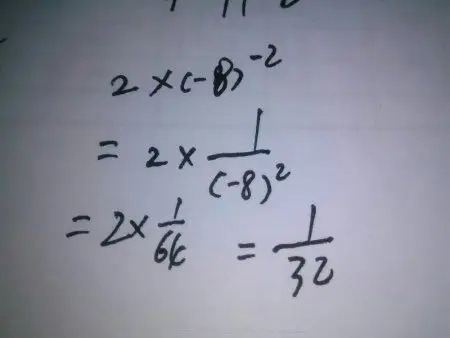 2 × (-8)^-2
= 2 × 1/(-8)^2
= 2 × 1/64 = 1/32